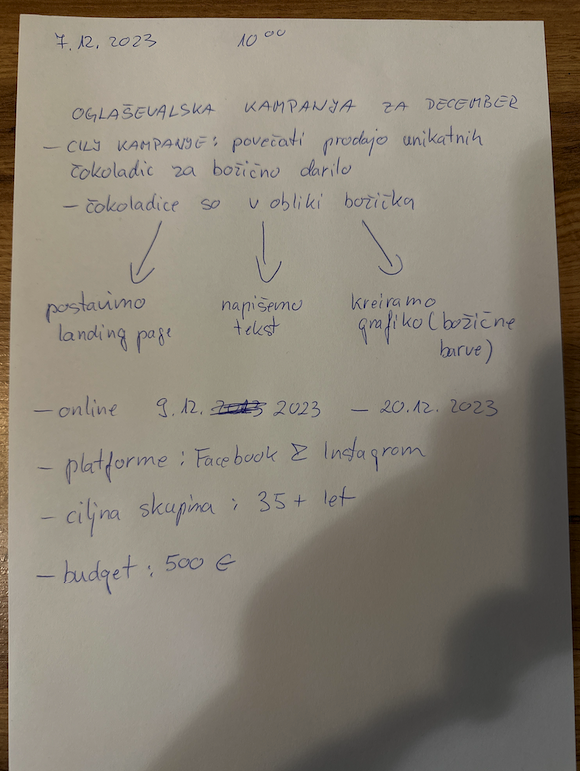 7.12.2023 10⁰⁰
OGLAŠEVALSKA KAMPANJA ZA DECEMBER
- CILJ KAMPANJE: povečati prodajo unikatnih
čokoladic za božično darilo
- čokoladice so v obliki božička
postavimo napišemo kreiramo
landing page tekst grafiko (božične
barve)
- online 9.12. 2023 - 20.12.2023
- platforme: Facebook & Instagram
- ciljna skupina: 35+ let
- budget: 500 €